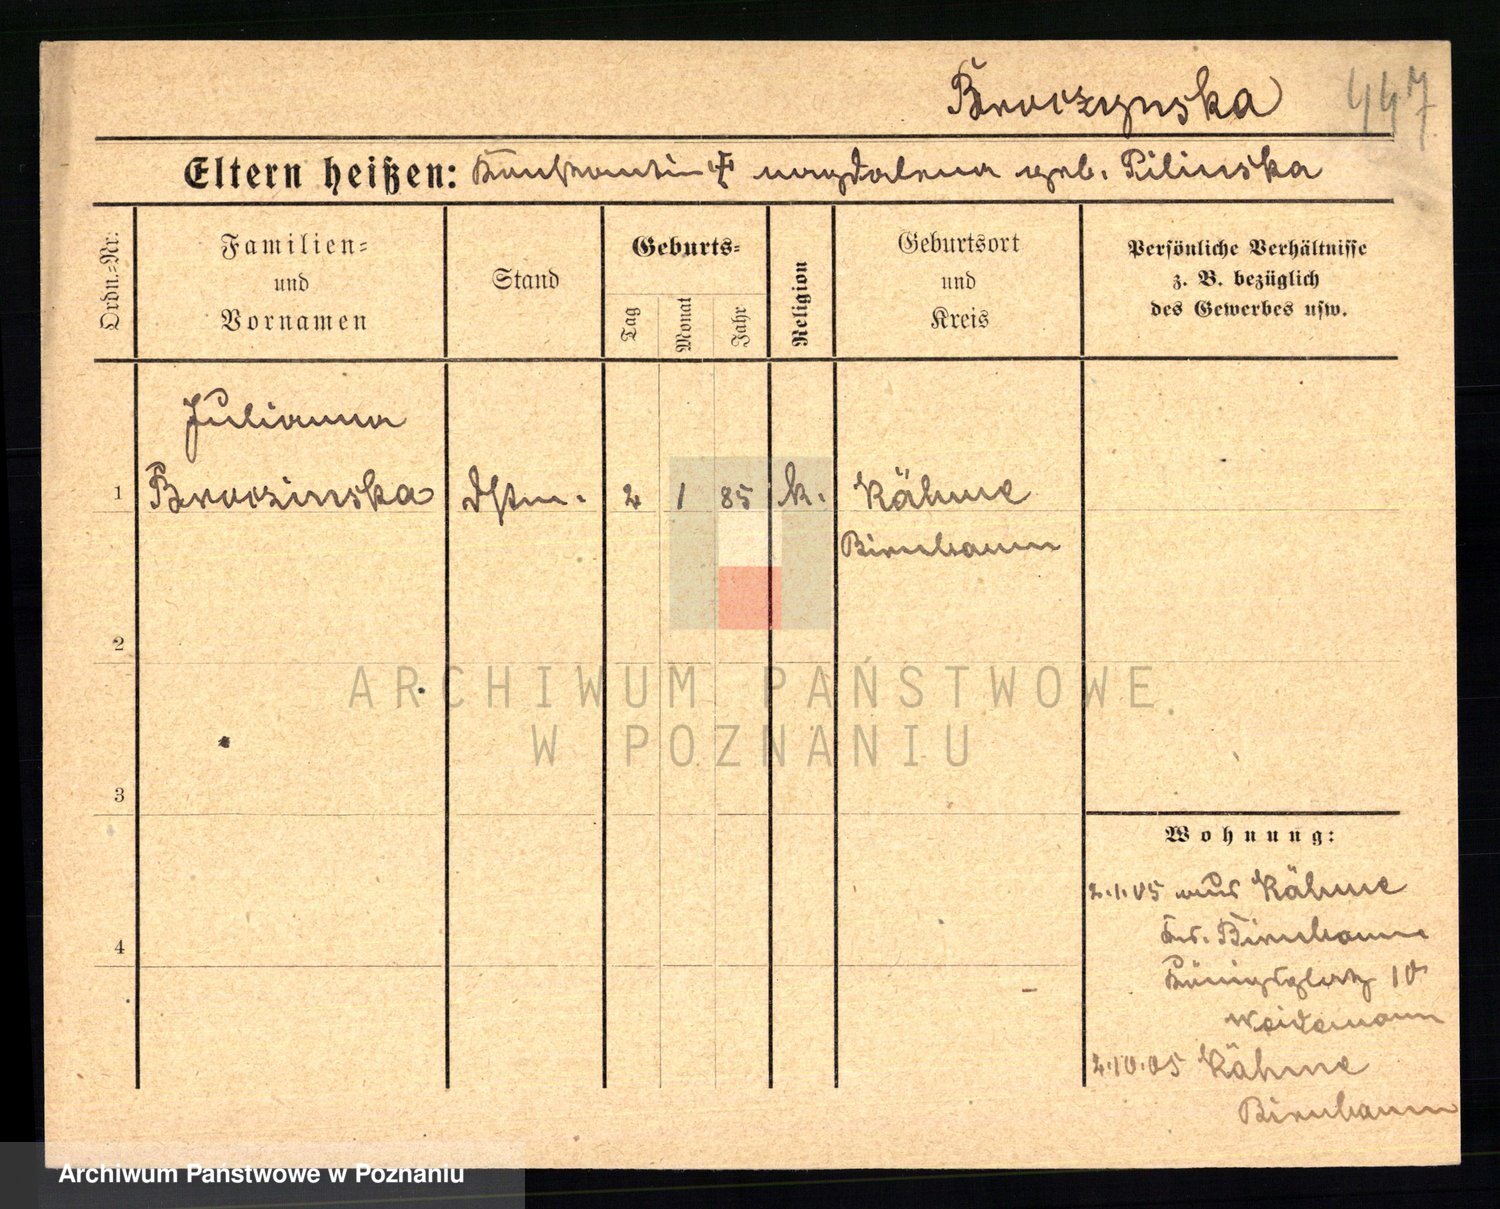 Broczynska
447
Eltern heißen: Konstantin † Magdalena geb. Pilinska
Ordn.=Nr.
Familien=
und
Vornamen
Stand
Geburts=
Tag
Monat
Jahr
Religion
Geburtsort
und
Kreis
Persönliche Verhältnisse
z. B. bezüglich
des Gewerbes usw.
Julianna
1 Broczinska Dstm. 2 1 85 k. Kähme
Birnbaum
2
ARCHIWUM PAŃSTWOWE
W POZNANIU
3
Wohnung:
2.1.05 aus Kähme
Kr. Birnbaum
Königsplatz 10
Weidemann
4
2.10.05 Kähme
Birnbaum
Archiwum Państwowe w Poznaniu